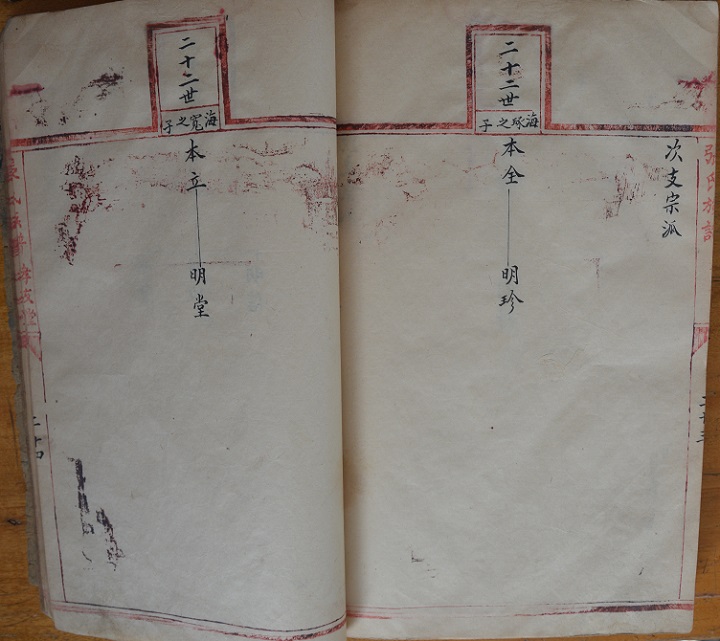 張氏族譜
次支宗派
二十二世
海琢之子
本全
明珍
二十二世
海寬之子
本立
明堂
二十四